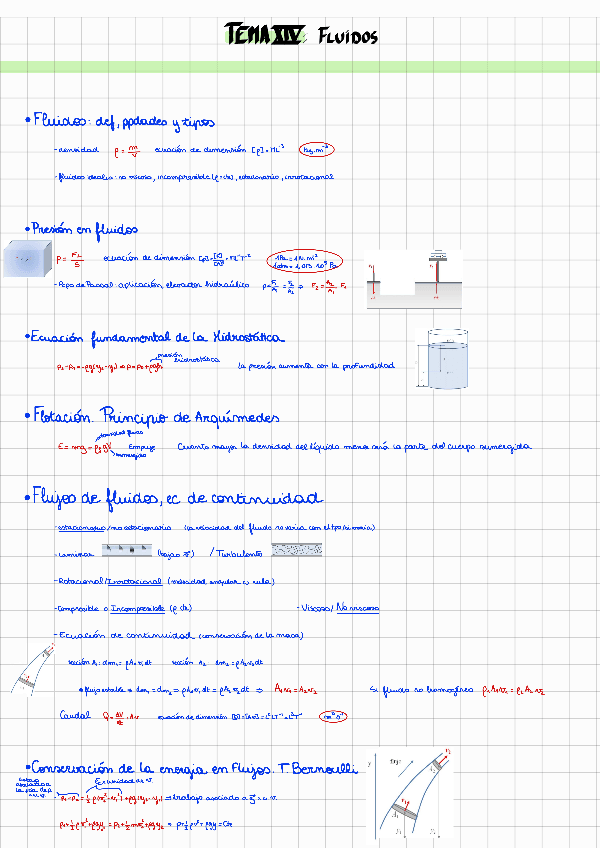 TEMA XIV: FLUIDOS
• Fluidos: def, ppdades y tipos
- densidad ρ = m/V ecuación de dimensión [ρ] = ML⁻³ kg·m⁻³
- fluidos ideales: no viscoso, incompresible (ρ = cte), estacionario, irrotacional
• Presión en fluidos
P = F⊥/S ecuación de dimensión
1 Pa = 1N·m²
1 atm = 1,013·10⁵ Pa
- Ppo de Pascal: aplicación elevador hidráulico P = F₁/A₁ = F₂/A₂ ⇒ F₂ = A₂/A₁ F₁
• Ecuación fundamental de la Hidrostática
presión hidrostática
P₂ - P₁ = -ρg(y₂-y₁) ⇒ P = P₀ + ρgh la presión aumenta con la profundidad
• Flotación. Principio de Arquímedes
densidad fluido
E = mg = ρgV Empuje Cuanto mayor la densidad del líquido menor será la parte del cuerpo sumergida
• Flujos de fluidos, ec de continuidad
- estacionario/no estacionario (la velocidad del fluido no varía con el tpo)
- Laminar (bajas v) / Turbulento
- Rotacional/Irrotacional (velocidad angular ω nula)
- Compresible o Incompresible (ρ cte) - Viscoso/ No viscoso
- Ecuación de continuidad (conservación de la masa)
sección A₁: dm₁ = ρA₁v₁dt sección A₂ dm₂ = ρA₂v₂dt
• flujo estable ⇒ dm₁ = dm₂ = ρA₁v₁dt = ρA₂v₂dt ⇒ A₁v₁ = A₂v₂ Si fluido no homogéneo ρ₁A₁v₁ = ρ₂A₂v₂
Caudal Q = ΔV/Δt = A·v ecuación de dimensión m³s⁻¹
• Conservación de la energía en Flujos. T. Bernoulli
P₁ - P₂ = ½ρ(v₂² - v₁²) + ρg(y₂ - y₁) ⇒ trabajo asociado a
P₁ + ½ρv₁² + ρgy₁ = P₂ + ½ρv₂² + ρgy₂ ⇒ P + ½ρv² + ρgy = Cte